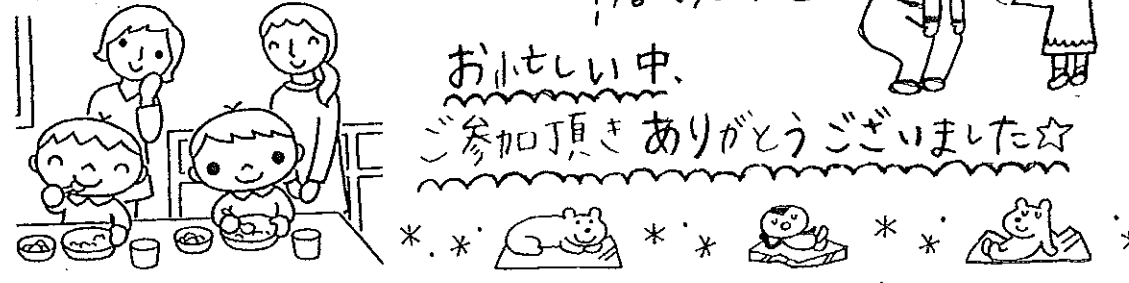 お忙しい中、
ご参加頂きありがとうございました☆